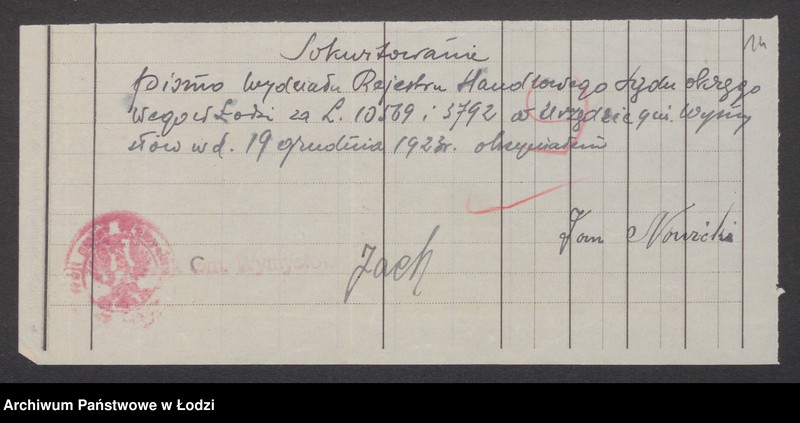 Pokwitowanie
14
Pismo Wydziału Rejestru Handlowego Sądu okręgo
wego w Łodzi za L. 10569 i 5792 w Urzędzie gm. Wymy
słów w d. 19 grudnia 1923r. otrzymałem
Jan Nowicki
Gm. Wymysłów
Zach
Archiwum Państwowe w Łodzi